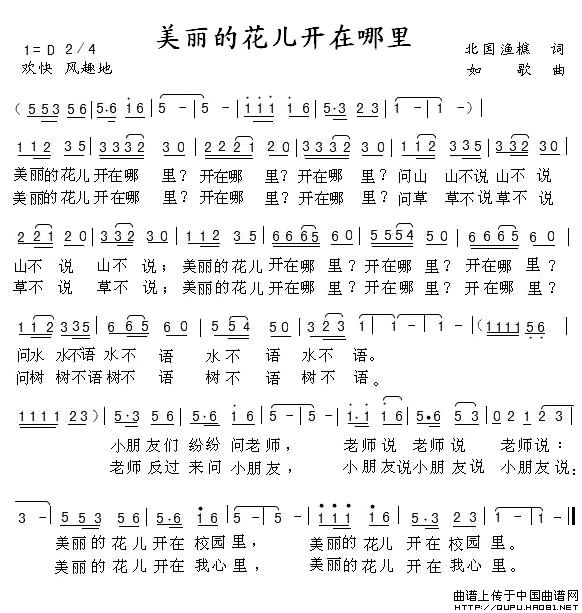 美丽的花儿开在哪里
1=D 2/4
北国渔樵 词
欢快 风趣地
如歌 曲
(553 56|5·6 i6|5 -|5 -|iii i6|5·3 23|1 -|1 -)|
112 35|3332 30|2221 20|3332 30|112 335|332 30|
美丽的花儿 开在哪 里? 开在哪 里? 开在哪 里? 问山 山不说 山不 说
美丽的花儿 开在哪 里? 开在哪 里? 开在哪 里? 问草 草不说草不 说
221 20|332 30|112 35|6665 60|5554 50|6665 60|
山不 说 山不 说; 美丽的花儿 开在哪 里? 开在哪 里? 开在哪 里?
草不 说 草不 说; 美丽的花儿 开在哪 里? 开在哪 里? 开在哪 里?
112 335|665 60|554 50|323|1 -|1 -|(111 56|
问水 水不语 水不 语 水不 语 水不 语。
问树 树不语 树不 语 树不 语 树不 语。
1111 23)|5·3 56|5·6 i6|5 -|5 -|i·i i6|5·6 53|021 23|
小朋友们 纷纷 问老师, 老师说 老师说 老师说:
老师反过 来问 小朋友, 小朋友说小朋友说 小朋友说:
3 -|5 53|5·6 i6|5 -|5 -|iii i6|5·3 23|1 -|1 -‖
美丽的 花儿 开在 校园 里, 美丽的 花儿 开在 校园 里。
美丽的 花儿 开在 我心 里, 美丽的 花儿 开在 我心 里。
曲谱上传于中国曲谱网
HTTP://QUPU.HAO81.NET